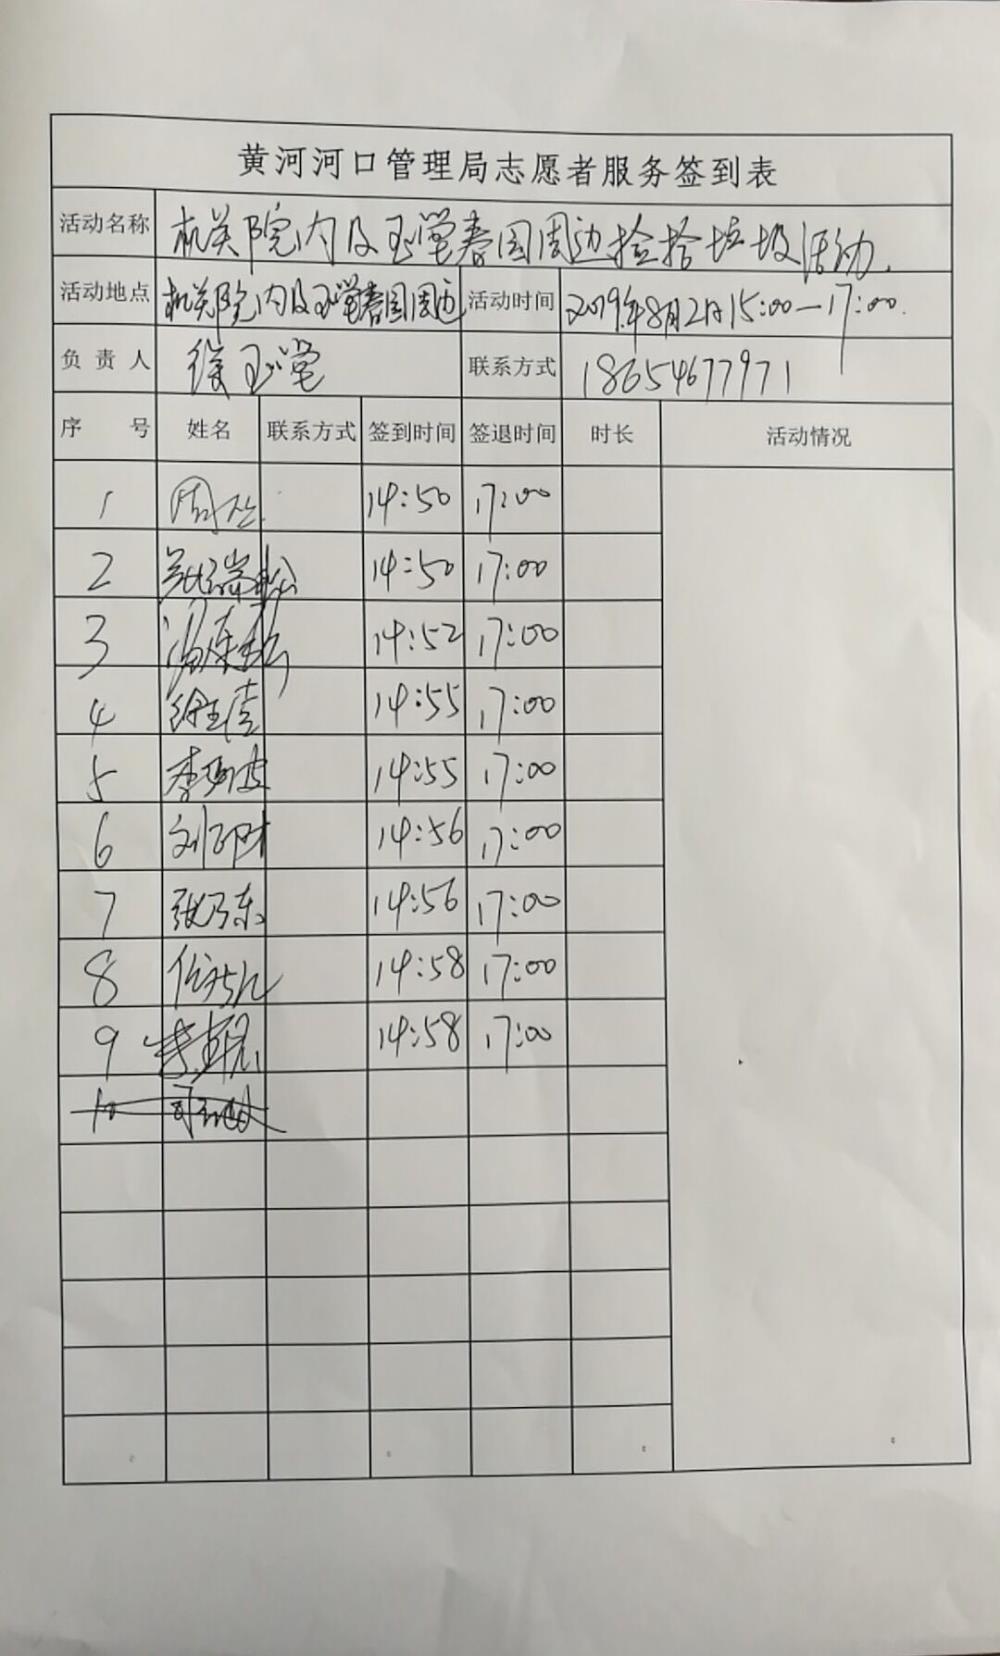 黄河河口管理局志愿者服务签到表
活动名称 机关院内及玉堂春园周边捡拾垃圾活动.
活动地点 机关院内及玉堂春园周边 活动时间 2019年8月2日15:00—17:00.
负责人 徐玉堂 联系方式 18654677971
序号 姓名 联系方式 签到时间 签退时间 时长 活动情况
1 14:50 17:00
2 14:50 17:00
3 14:52 17:00
4 14:55 17:00
5 14:55 17:00
6 14:56 17:00
7 张乃东 14:56 17:00
8 14:58 17:00
9 14:58 17:00
10